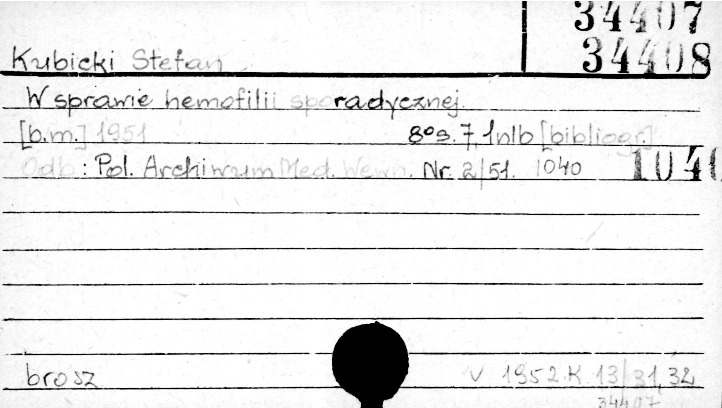 34407
34408
Kubicki Stefan
W sprawie hemofilii sporadycznej.
[b.m.] 1951 8° s. 7, 1nlb [bibliogr.]
Odb.: Pol. Archiwum Med. Wewn. Nr. 2/51. 1040 1040
brosz V 1952.K 13/31,32
34407